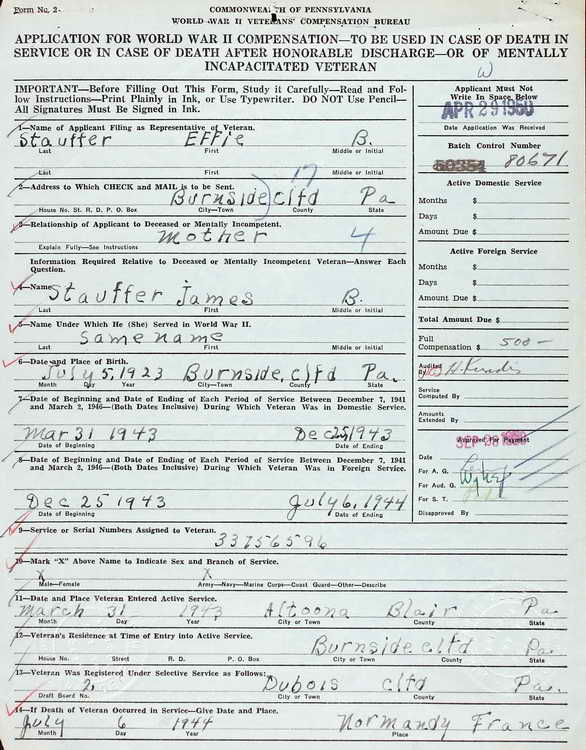 Form No. 2
COMMONWEALTH OF PENNSYLVANIA
WORLD WAR II VETERANS' COMPENSATION BUREAU
APPLICATION FOR WORLD WAR II COMPENSATION—TO BE USED IN CASE OF DEATH IN
SERVICE OR IN CASE OF DEATH AFTER HONORABLE DISCHARGE—OR OF MENTALLY
INCAPACITATED VETERAN
W
IMPORTANT—Before Filling Out This Form, Study it Carefully—Read and Fol-
low Instructions—Print Plainly in Ink, or Use Typewriter. DO NOT Use Pencil—
All Signatures Must Be Signed in Ink.
1—Name of Applicant Filing as Representative of Veteran.
Stauffer Effie B.
Last First Middle or Initial
Last First Middle or Initial
17
2—Address to Which CHECK and MAIL is to be Sent.
Burnside clfd Pa
House No. St. R. D. P. O. Box City—Town County State
3—Relationship of Applicant to Deceased or Mentally Incompetent.
Mother 4
Explain Fully—See Instructions
Information Required Relative to Deceased or Mentally Incompetent Veteran—Answer Each
Question.
4—Name
Stauffer James B.
Last First Middle or Initial
5—Name Under Which He (She) Served in World War II.
Same name
Last First Middle or Initial
6—Date and Place of Birth.
July 5, 1923 Burnside, clfd Pa.
Month Day Year City—Town County State
7—Date of Beginning and Date of Ending of Each Period of Service Between December 7, 1941
and March 2, 1946—(Both Dates Inclusive) During Which Veteran Was in Domestic Service.
Mar 31 1943 Dec 25, 1943
Date of Beginning Date of Ending
8—Date of Beginning and Date of Ending of Each Period of Service Between December 7, 1941
and March 2, 1946—(Both Dates Inclusive) During Which Veteran Was in Foreign Service.
Dec 25 1943 July 6, 1944
Date of Beginning Date of Ending
9—Service or Serial Numbers Assigned to Veteran.
33756596
10—Mark "X" Above Name to Indicate Sex and Branch of Service.
X X
Male—Female Army—Navy—Marine Corps—Coast Guard—Other—Describe
11—Date and Place Veteran Entered Active Service.
March 31 1943 Altoona Blair Pa
Month Day Year City or Town County State
12—Veteran's Residence at Time of Entry into Active Service.
Burnside clfd Pa.
House No. Street R. D. P. O. Box City or Town County State
13—Veteran Was Registered Under Selective Service as Follows:
2 Dubois clfd Pa.
Draft Board No. City or Town County State
14—If Death of Veteran Occurred in Service—Give Date and Place.
July 6 1944 Normandy France
Month Day Year Place
Applicant Must Not
Write In Space Below
APR 29 1950
Date Application Was Received
Batch Control Number
50351 80671
Active Domestic Service
Months $
Days $
Amount Due $
Active Foreign Service
Months $
Days $
Amount Due $
Total Amount Due $
Full
Compensation $ 500 —
Audited
By
Service
Computed By
Amounts
Extended By
Approved For Payment
Date
For A. G.
For Aud. G.
For S. T.
Disapproved By